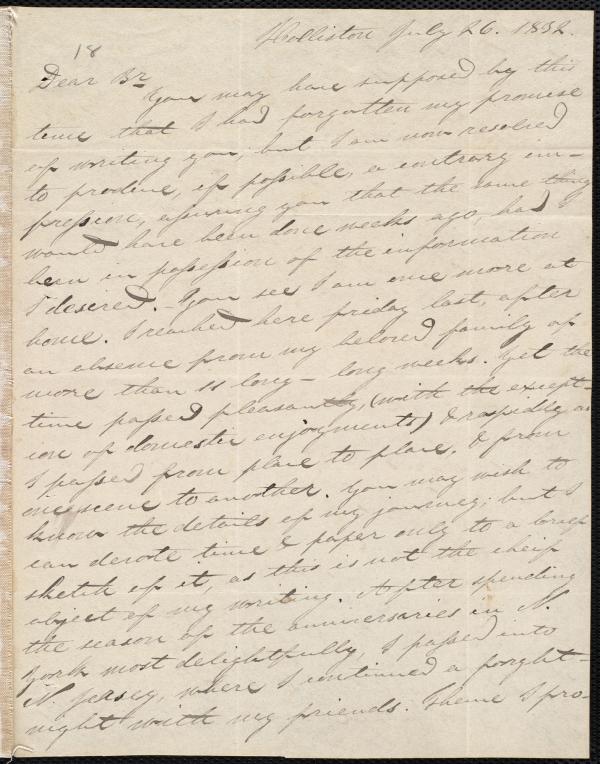 Holliston July 26. 1832.
18
Dear Br
You may have supposed by this
time that I had forgotten my promise
of writing you; but I am now resolved
to produce, if possible, a contrary im-
pression, assuring you that the same thing
would have been done weeks ago, had I
been in possession of the information
I desired. You see I am once more at
home. I reached here friday last, after
an absence from my beloved family of
more than 11 long - long weeks. Yet the
time passed pleasantly, (with the except-
ion of domestic enjoyments) & rapidly as
I passed from place to place, & from
one scene to another. You may wish to
know the details of my journey; but I
can devote time & paper only to a brief
sketch of it, as this is not the chief
object of my writing. After spending
the season of the anniversaries in N.
York most delightfully, I passed into
N. Jersey, where I continued a forght-
night with my friends. Thence I pro-